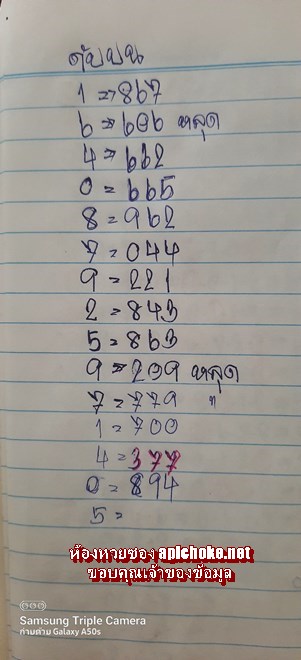 ดับบน
1 => 867
6 => 606 หลุด
4 => 662
0 = 665
8 = 962
7 = 044
9 = 221
2 = 843
5 = 863
9 => 209 หลุด
7 = 779 "
1 = 700
4 = 377
0 = 894
5 =
ห้องหวยซอง apichoke.net
ขอบคุณเจ้าของข้อมูล
Samsung Triple Camera
ถ่ายด้วย Galaxy A50s